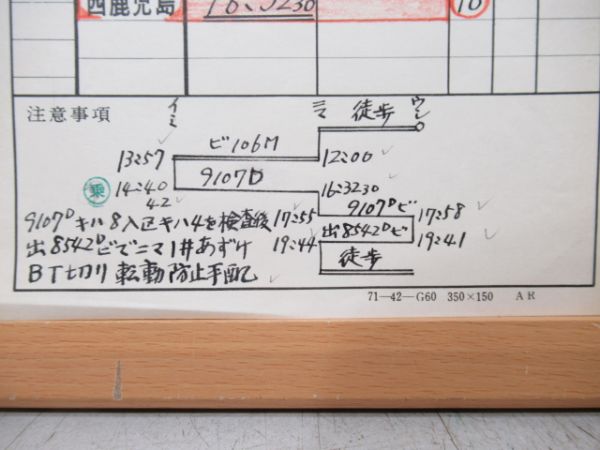 西鹿児島 16:3230 16
注意事項
イミ ミマ 徒歩 ウン
ビ106M
13:57 12:00
9107D
乗 14:40 16:3230
42
9107D ビ
9107D キハ8入区キハ4を検査後 17:55 17:58
出8542D ビ
出8542D ビでニマ1井あずけ 19:44 19:41
BT切り 転動防止手配乙 徒歩
71—42—G60 350×150 AR